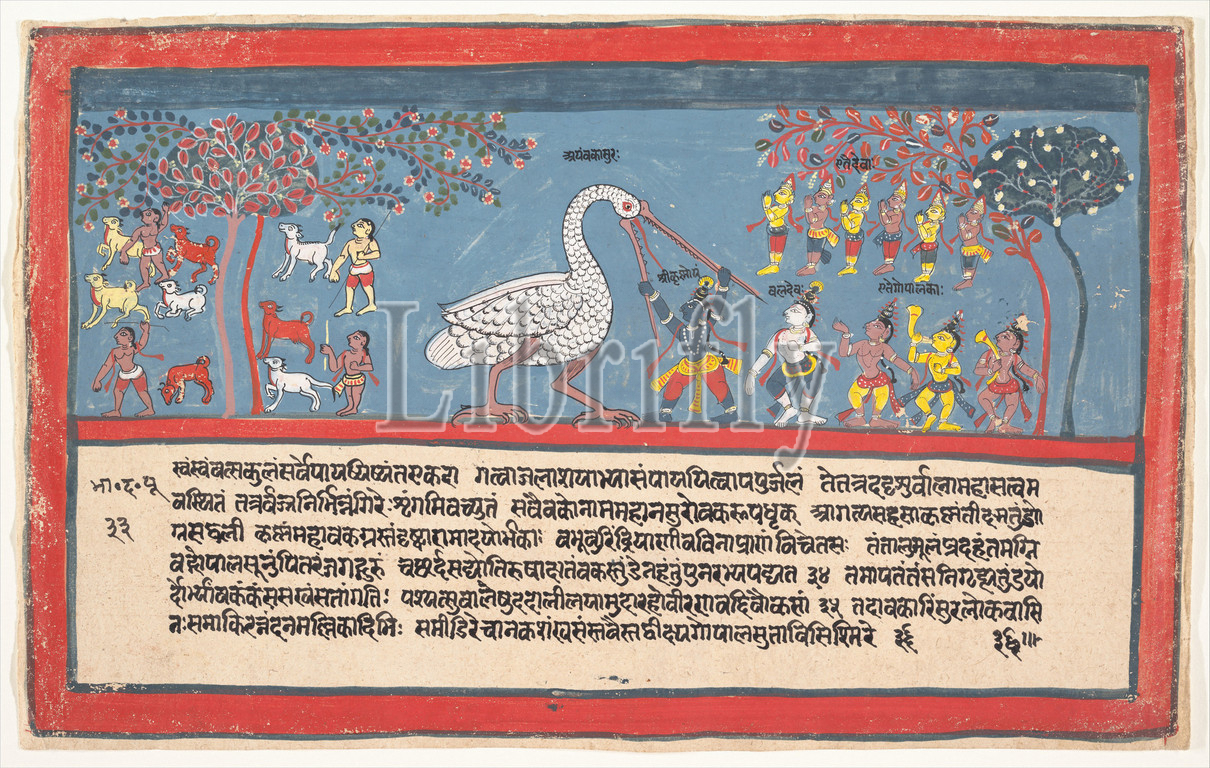 अयंवकासुरः
एतेदेवाः
श्रीकृष्णोयं
वलदेवः
एतेगोपालकाः
Librifly
भा॰द॰पू
३३
स्वंस्वंवत्सकुलंसर्वेपाययिष्यंतएकदा गत्वाजलाशयाभ्याशंपाययित्वापपुर्जलं तेतत्रददृशुर्वालामहासत्वम
वस्थितं तत्रसुर्वज्रनिर्भिन्नंगिरेःशृंगमिवच्युतं सवैवकोनाममहानसुरोवकरूपधृक् आगत्यसहसाकृष्णंतीक्ष्णतुंडो
ग्रसद्वली कृष्णंमहावकग्रस्तंदृष्ट्वारामादयोर्भकाः वभूवुरिंद्रियाणीवविनाप्राणंविचेतसः तंतालुमूलंप्रदहंतमग्नि
वद्गोपालसूनुंपितरंजगद्गुरुं चच्छर्दसद्योतिरुषाक्षतंवकस्तुंडेनहंतुंपुनरभ्यपद्यत ३४ तमापतंतंसनिगृह्यतुंडयो
र्दोर्भ्यांवकंकंससखंसतांगतिः पश्यत्सुवालेषुददारलीलयामुदावहोवीरणवद्दिवौकसां ३५ तदावकारिंसुरलोकवासि
नःसमाकिरन्नंदनमल्लिकादिभिः समीडिरेचानकशंखसंस्तवैस्तद्वीक्ष्यगोपालसुताविसिस्मिरे ३६ ३६